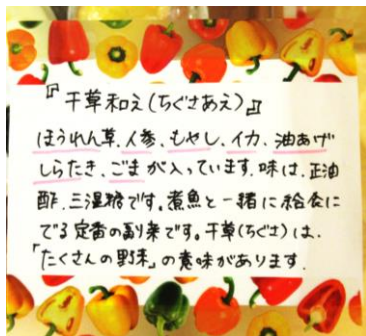 『千草和え(ちぐさあえ)』
ほうれん草、人参、もやし、イカ、油あげ
しらたき、ごまが入っています。味は、正油
酢、三温糖です。煮魚と一緒に給食に
でる定番の副菜です。千草(ちぐさ)は、
「たくさんの野菜」の意味があります。